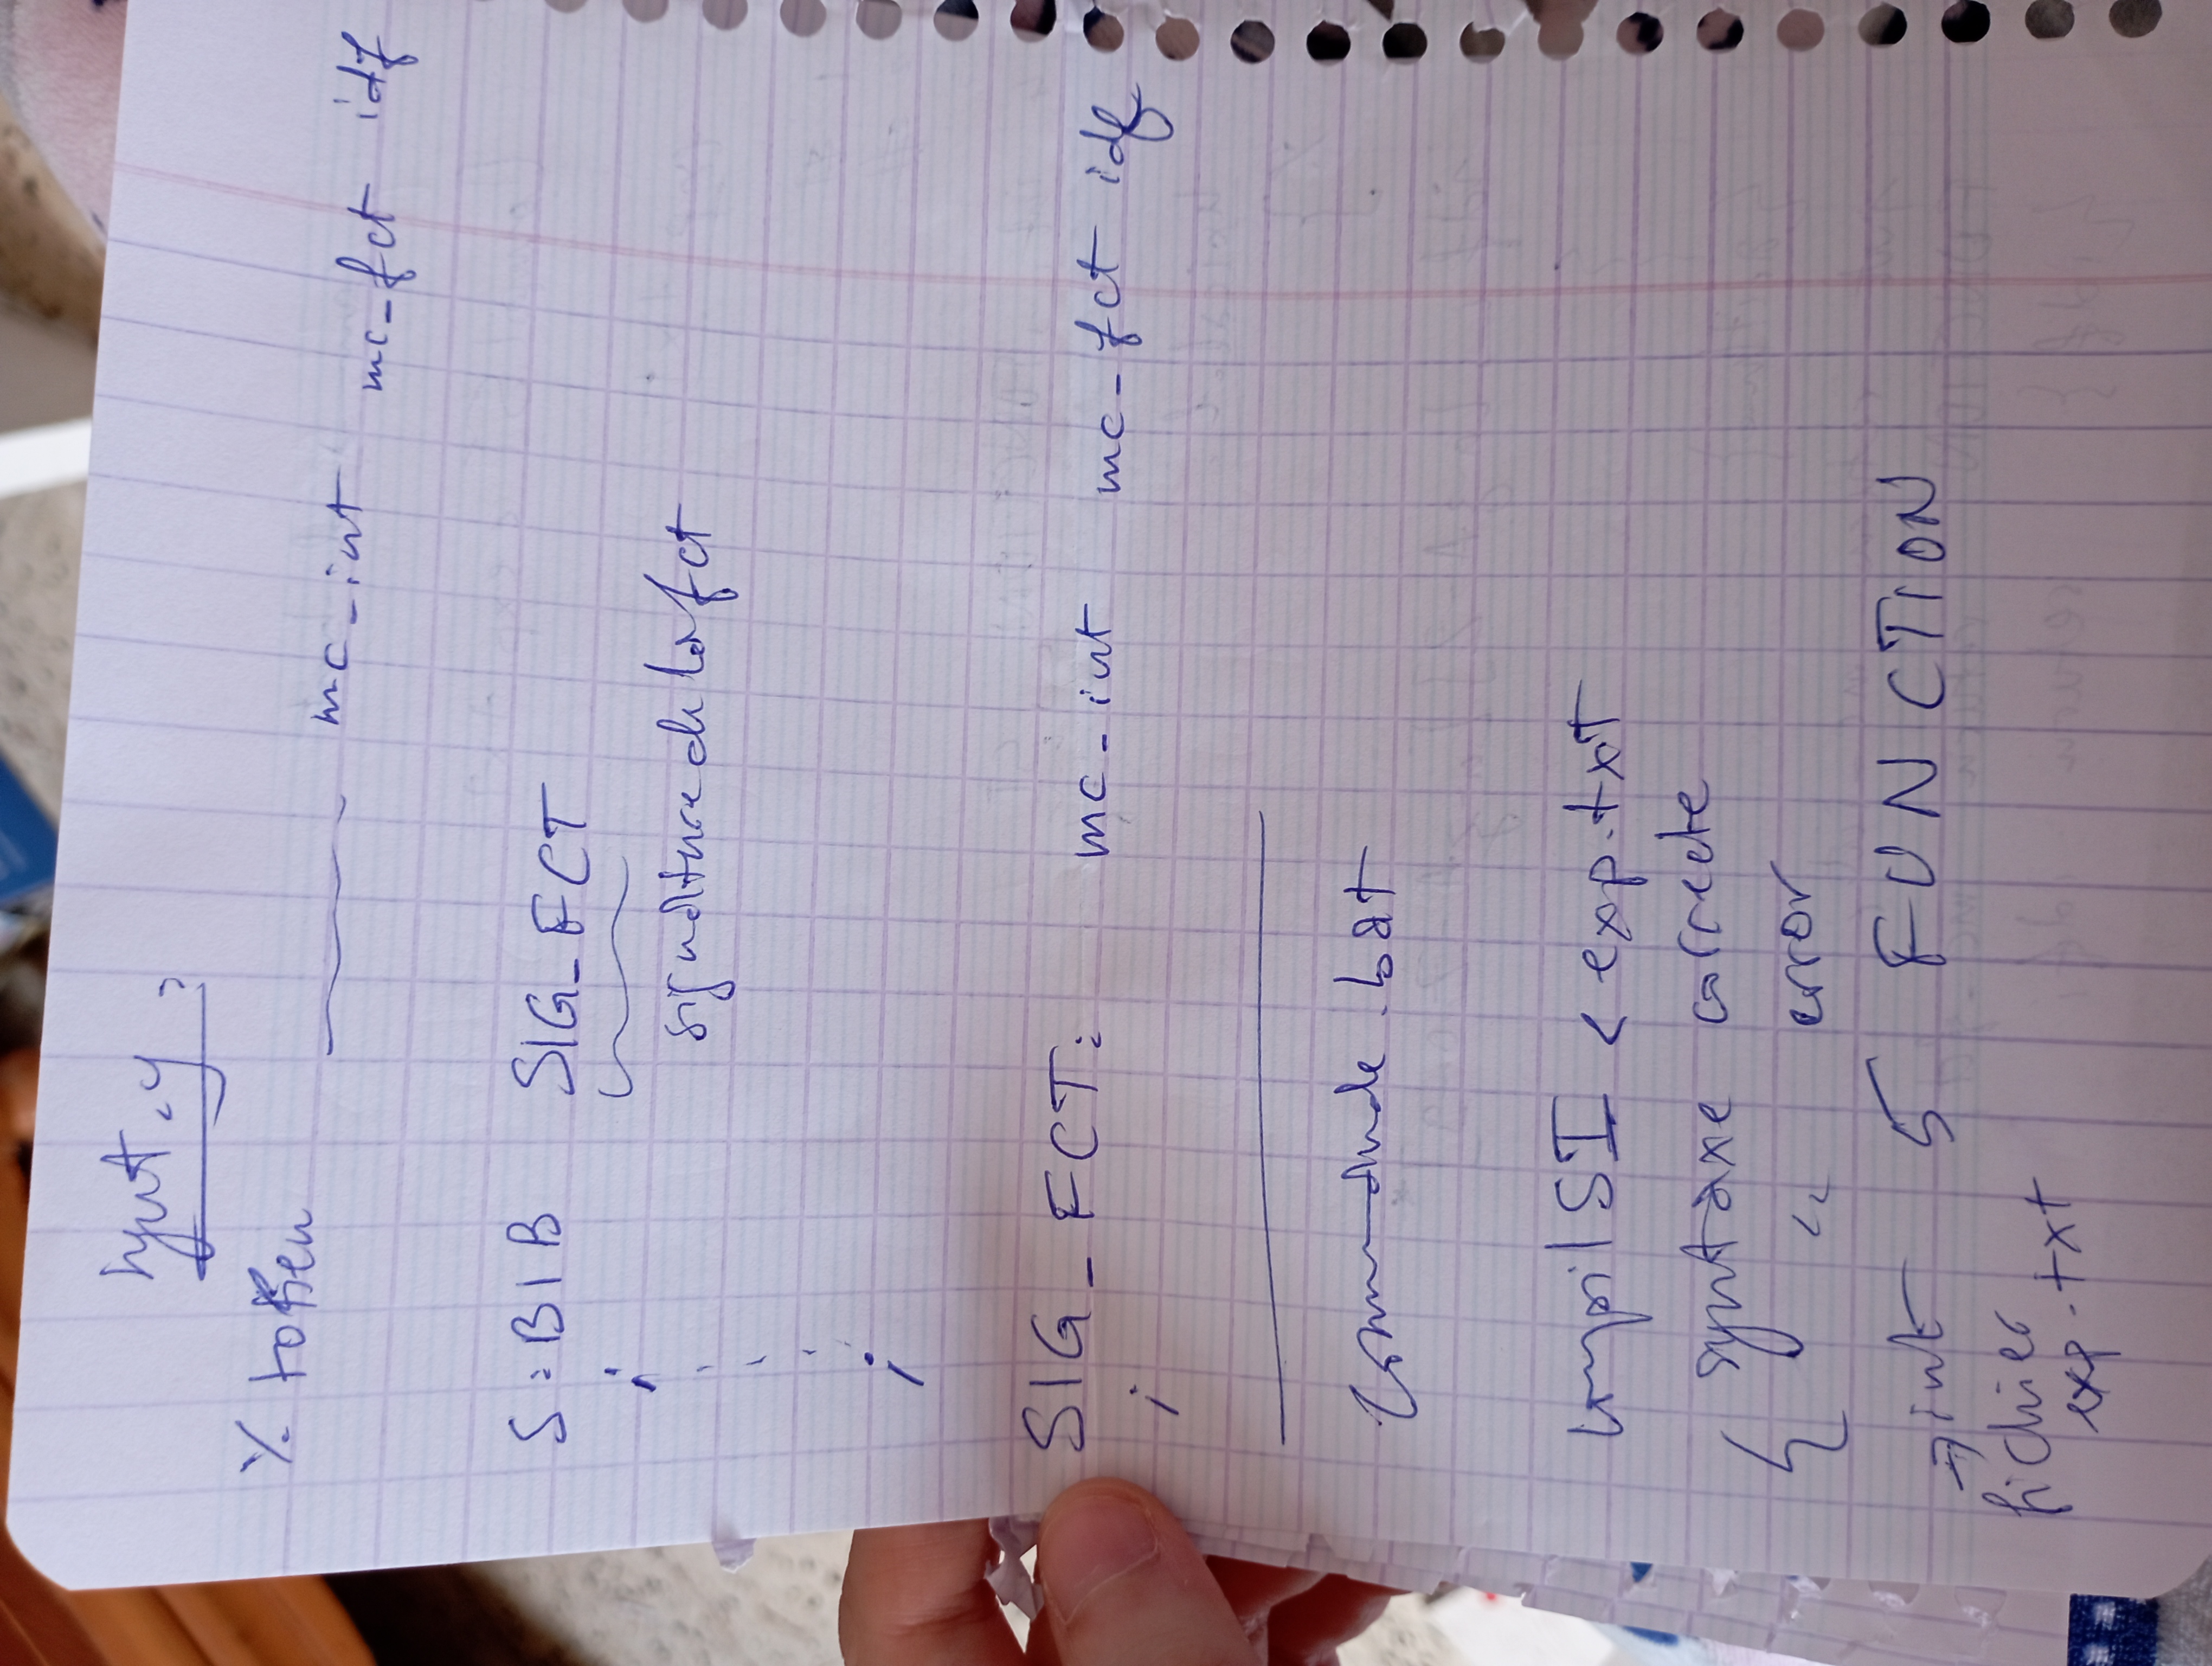 synt.y :
% token mc_int mc_fct idf
S : BIB SIG_FCT
;
signature de la fct
;
SIG_FCT : mc_int mc_fct idf
;
commande.bat
compilSI < exp.txt
{ syntaxe correcte
" error
→ int 5 FUNCTION
fichier
exp.txt